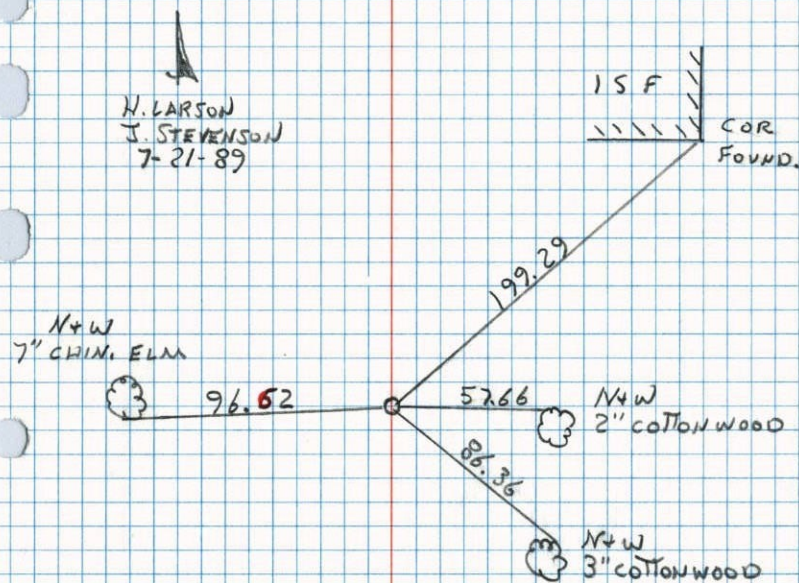 H. LARSON
J. STEVENSON
7-21-89
1 S F
COR
FOUND.
199.29
N+W
7" CHIN. ELM
96.62
57.66
N+W
2" COTTONWOOD
86.36
N+W
3" COTTONWOOD